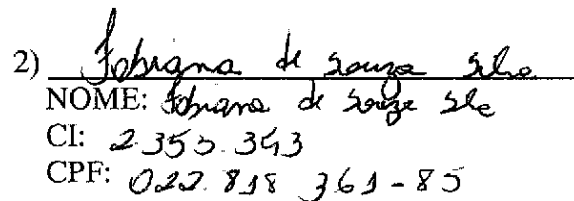 2) Fabiana de Souza Silva
NOME: Fabiana de Souza Silva
CI: 2.355.343
CPF: 022.818.361-85